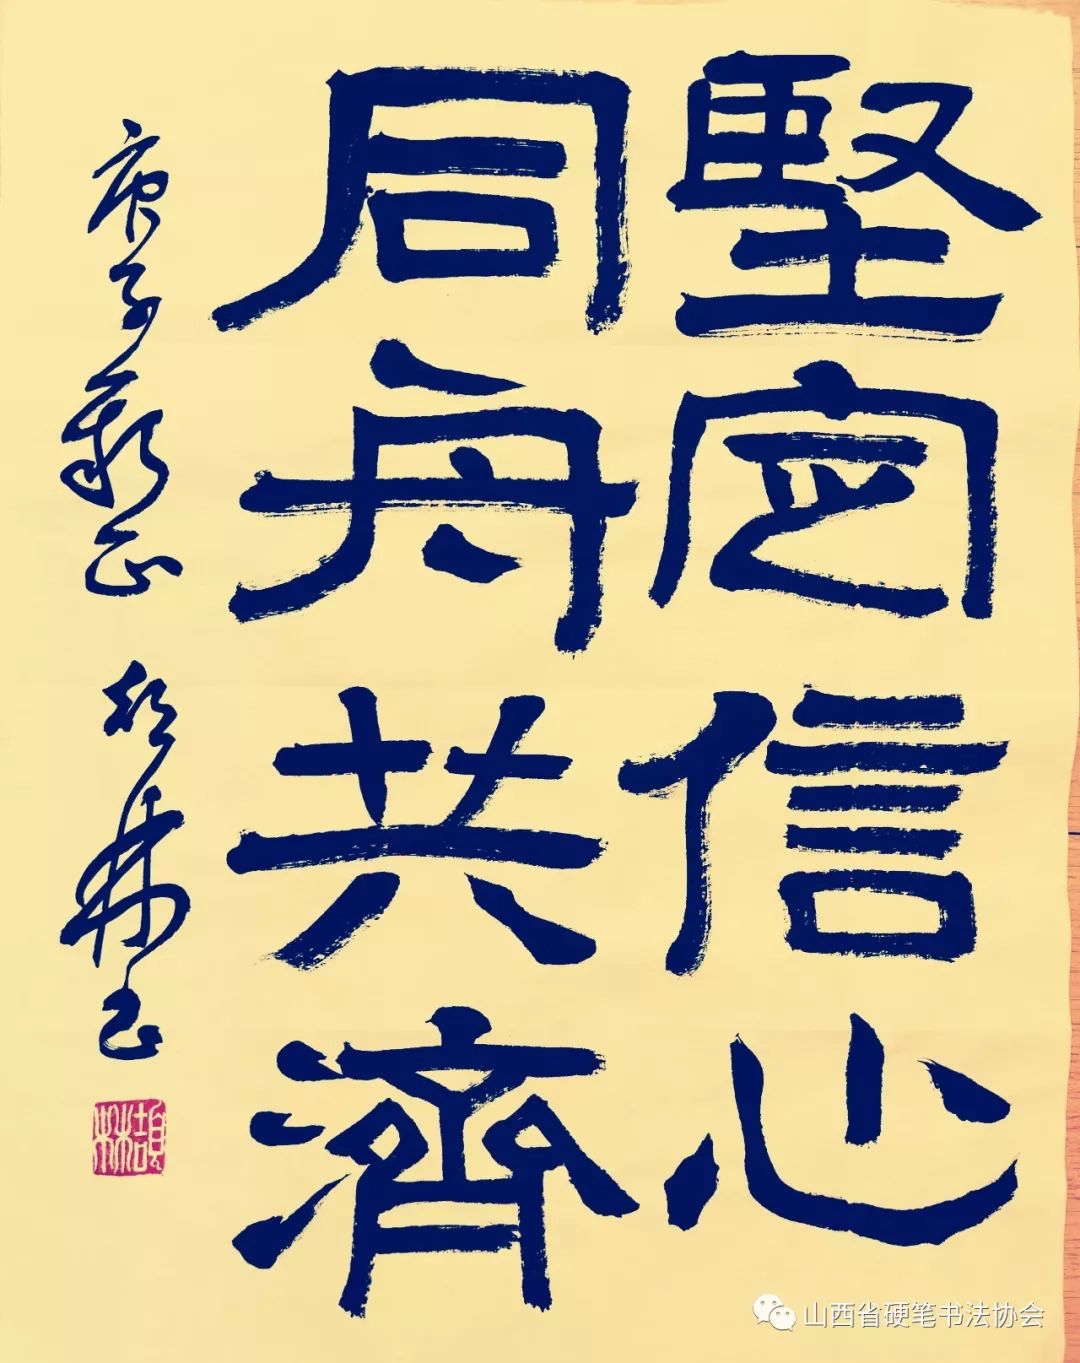 堅定信心
同舟共濟
庚子新正 頡林书
頡林
山西省硬笔书法协会